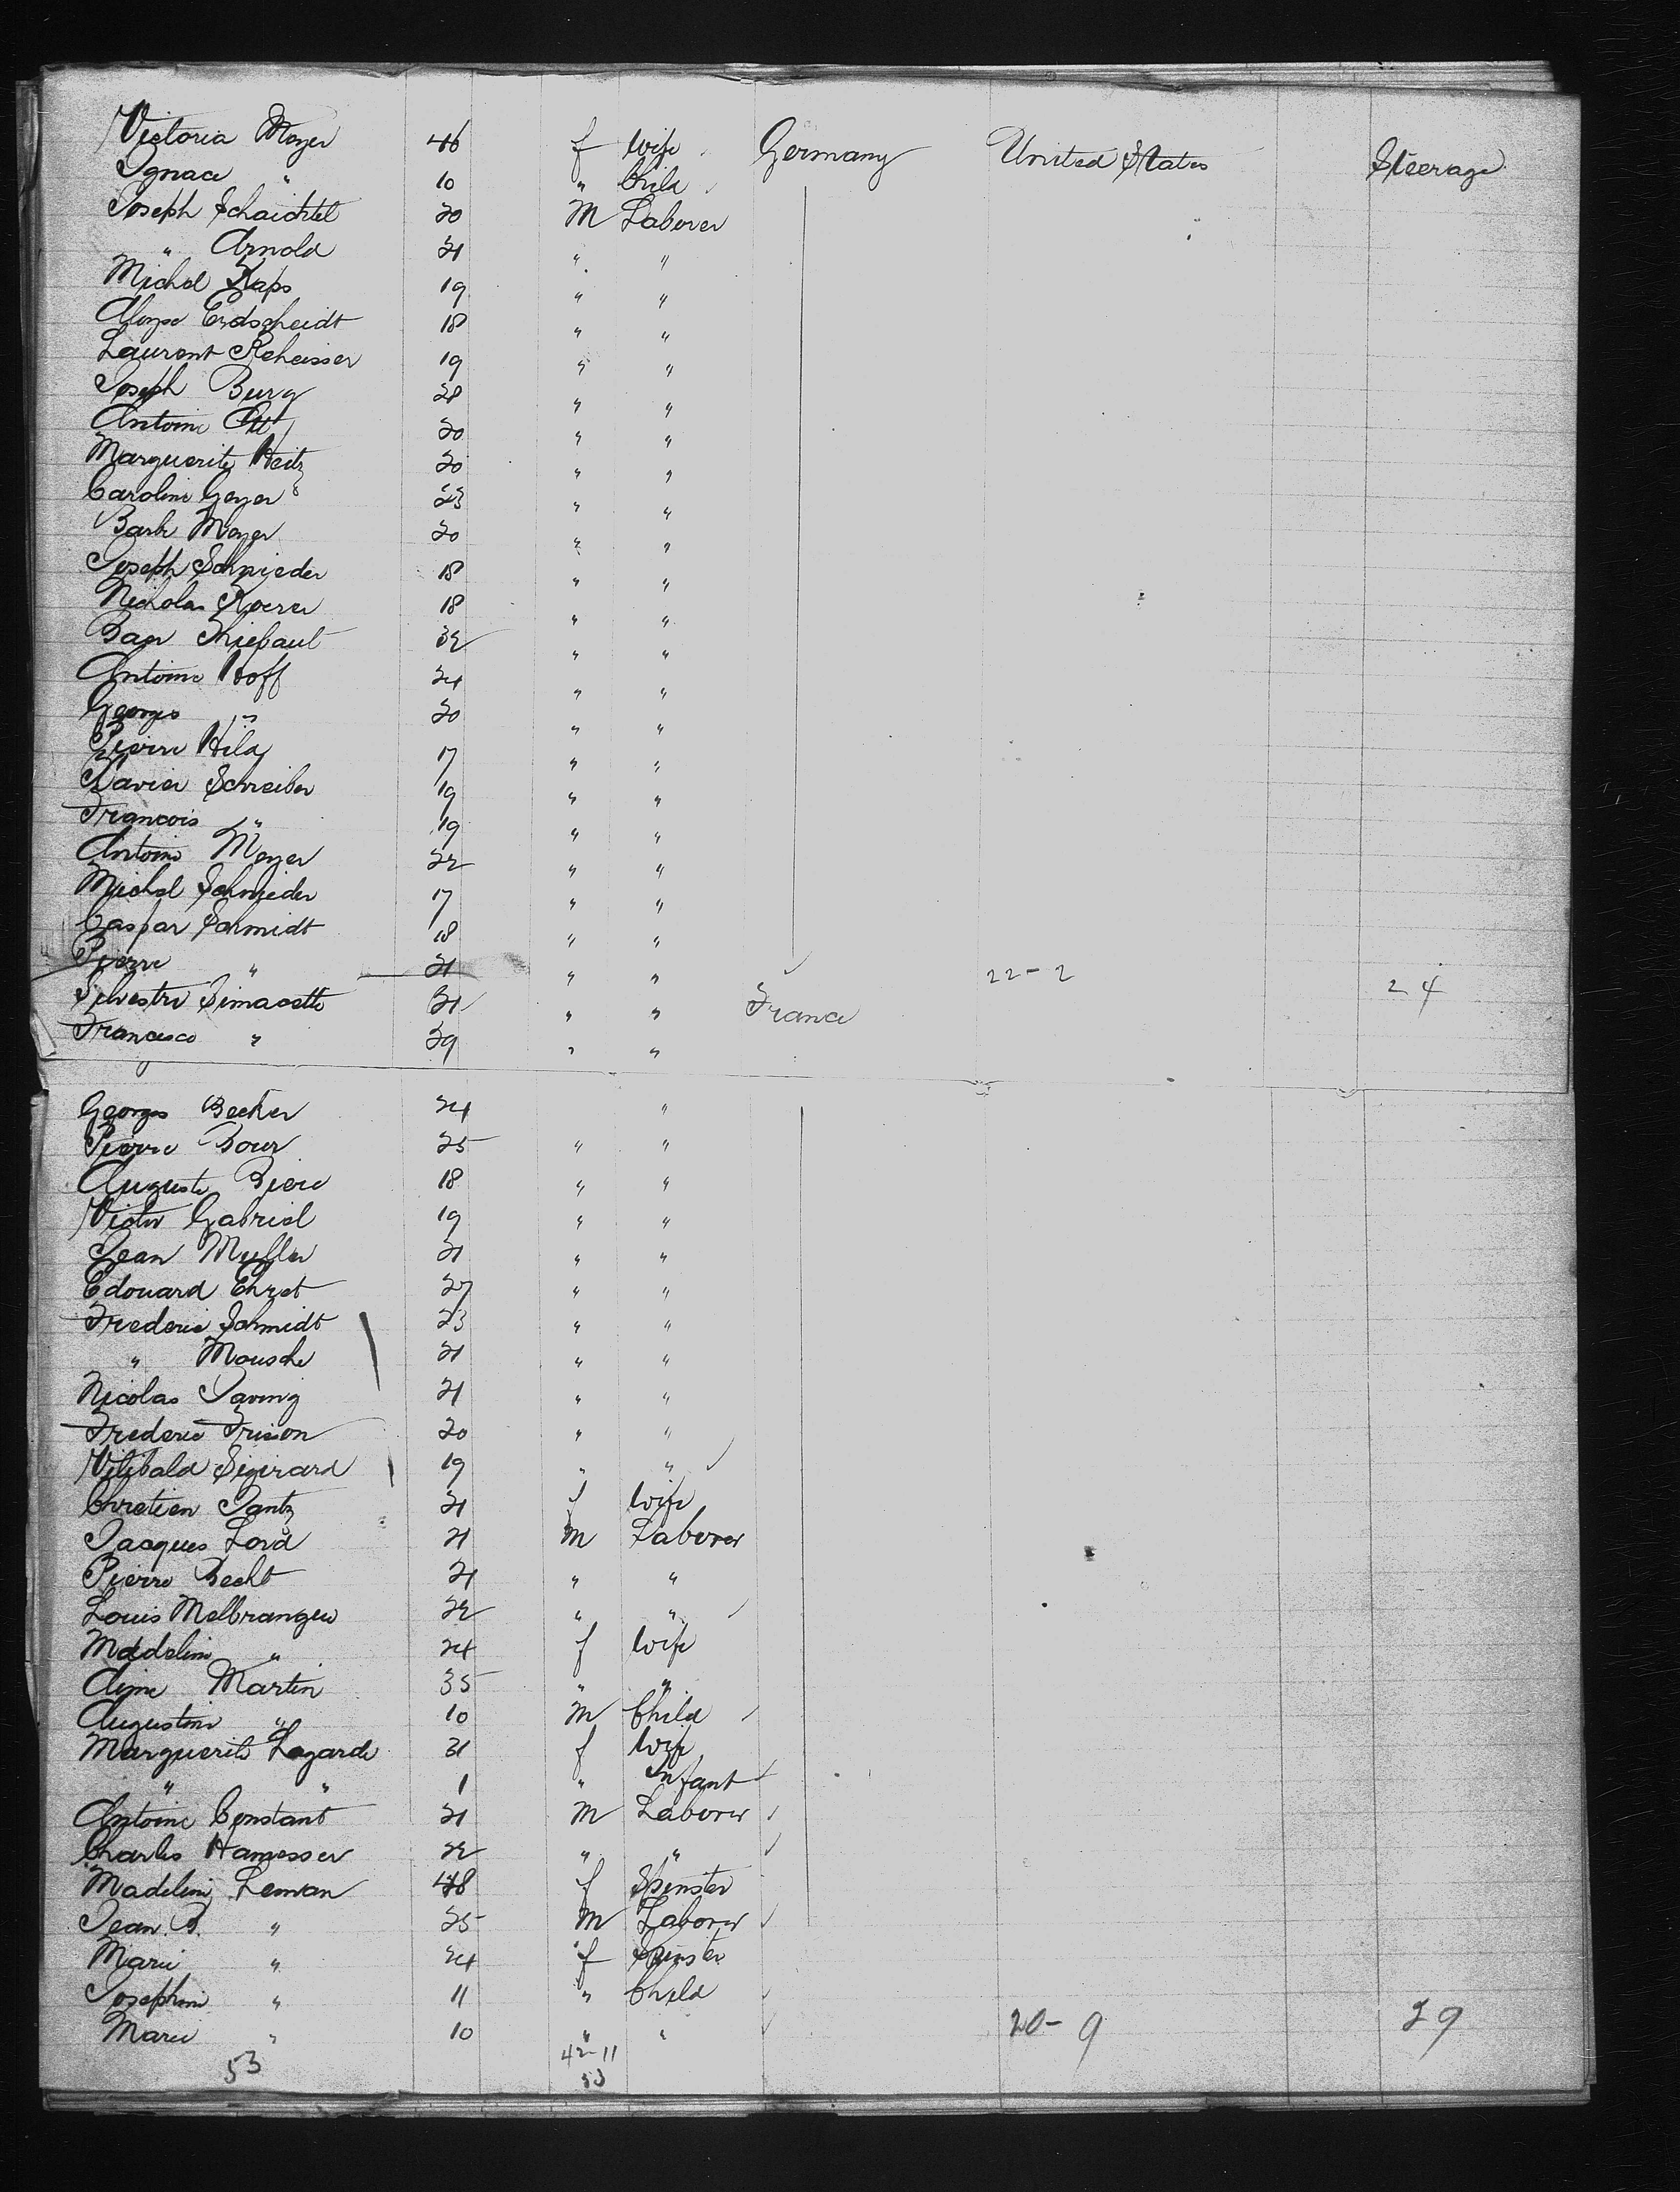 Victoria Meyer 46 f Wife Germany United States Steerage
Ignace " 10 " Child
Joseph Schaichtel 20 M Laborer
" Arnold 21 " "
Michel Kaps 19 " "
Aloyse Erdscheidt 18 " "
Laurent Reheisser 19 " "
Joseph Burg 28 " "
Antoine Ott 20 " "
Marguerite Heitz 20 " "
Caroline Geyer 23 " "
Barbe Meyer 20 " "
Joseph Schnieder 18 " "
Nicholas Roerer 18 " "
Thiebaut 32 " "
Antoine Hoff 24 " "
Georges " 20 " "
Pierre Hila 17 " "
Xavier Schreiber 19 " "
Francois " 19 " "
Antoine Meyer 22 " "
Michel Schnieder 17 " "
Caspar Schmidt 18 " "
Pierre " 21 " " 22-2 24
Silvestre Simacotte 31 " " France
Francesco " 39 " "
Georges Becker 24 "
Pierre Bour 25 " "
Auguste 18 " "
Victor Gabriel 19 " "
Jean Muller 21 " "
Edouard Ehret 27 " "
Frederic Schmidt 23 " "
" Mousche 21 " "
Nicolas Javing 21 " "
Frederic Frison 20 " "
Vilibald Sigirard 19 " "
Chretien Jantz 21 f Wife
Jacques Lord 21 M Laborer
Pierre Becht 21 " "
Louis Melbrangeu 22 " "
Madeline " 24 f Wife
Aime Martin 35 " "
Augustine " 10 M Child
Marguerite Lagarde 31 f Wife
" " 1 " Infant
Antoine Constant 21 M Laborer
Charles Hamesser 22 " "
Madeline Leman 48 f Spinster
Jean B. " 25 M Laborer
Marie " 24 f Spinster
Josephine " 11 " Child
Marie " 10 " " 20-9 29
53 42-11
53